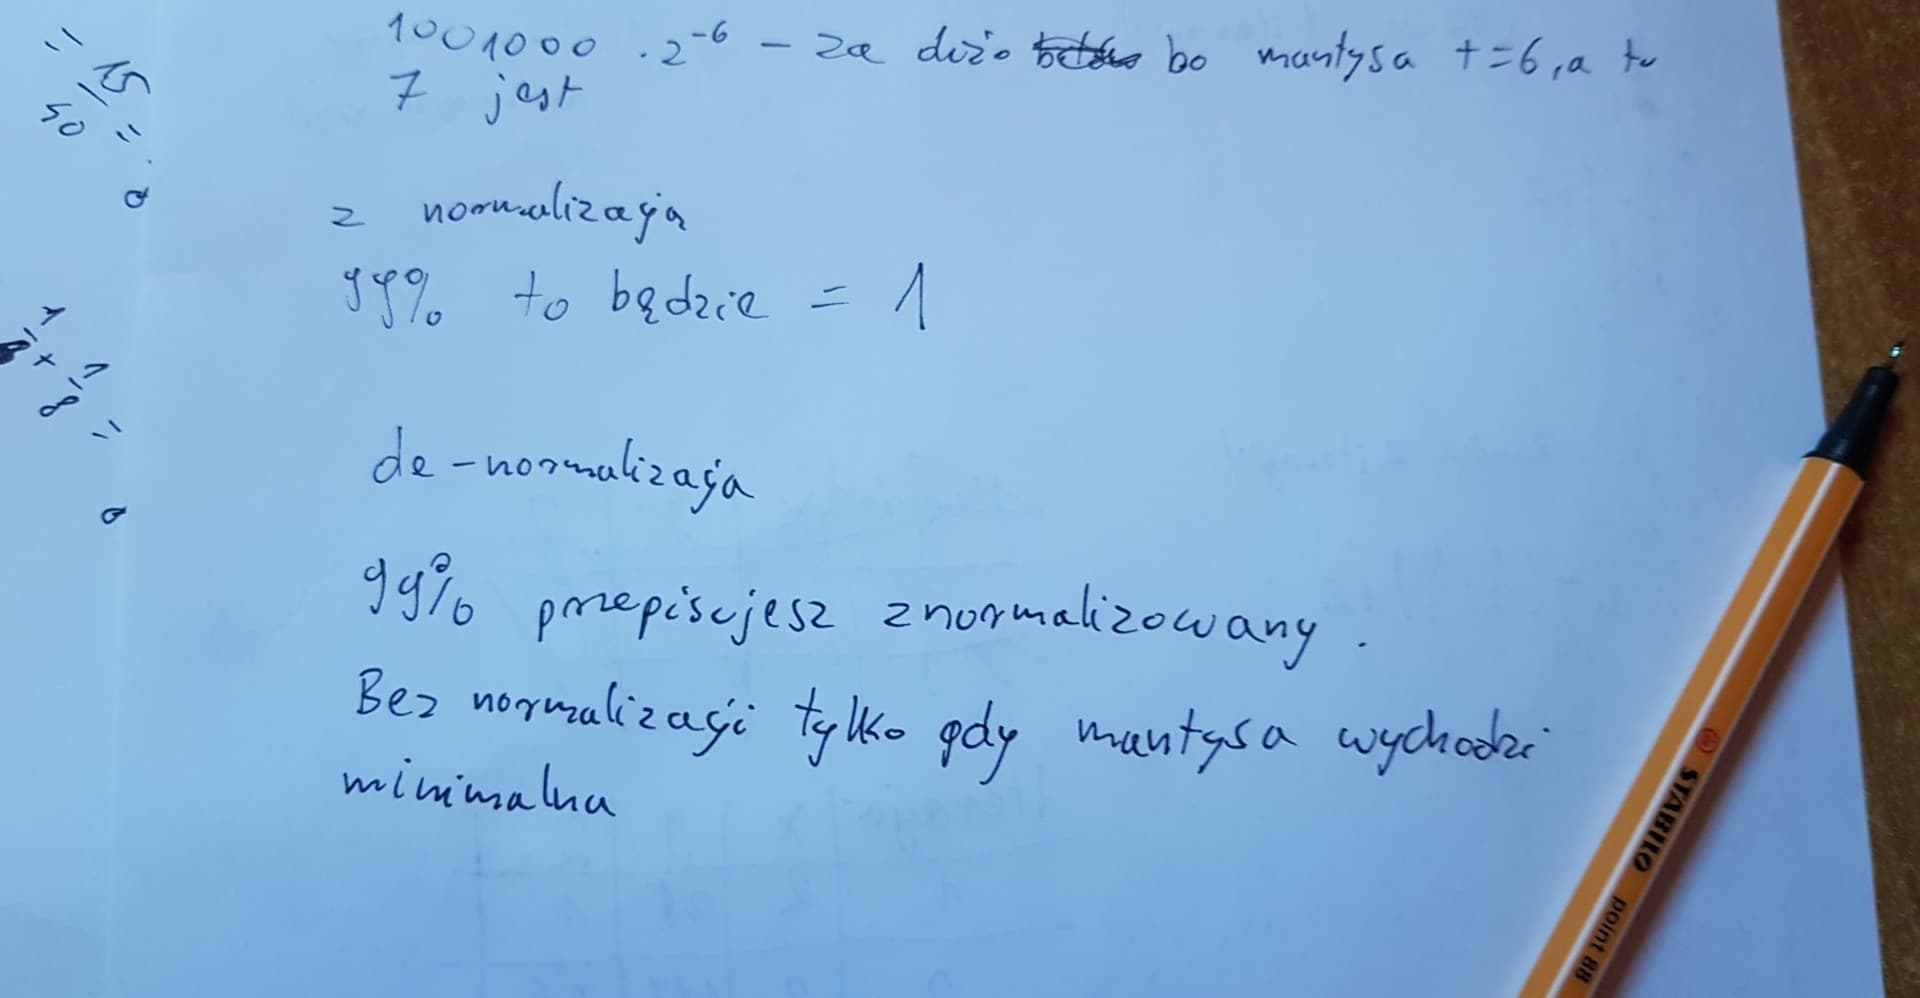 1001000 . 2^-6 - za dużo bo mantysa t=6, a tu
7 jest
z normalizacją
99% to będzie = 1
de-normalizacja
99% przepisujesz znormalizowany.
Bez normalizacji tylko gdy mantysa wychodzi
minimalna
STABILO point 88